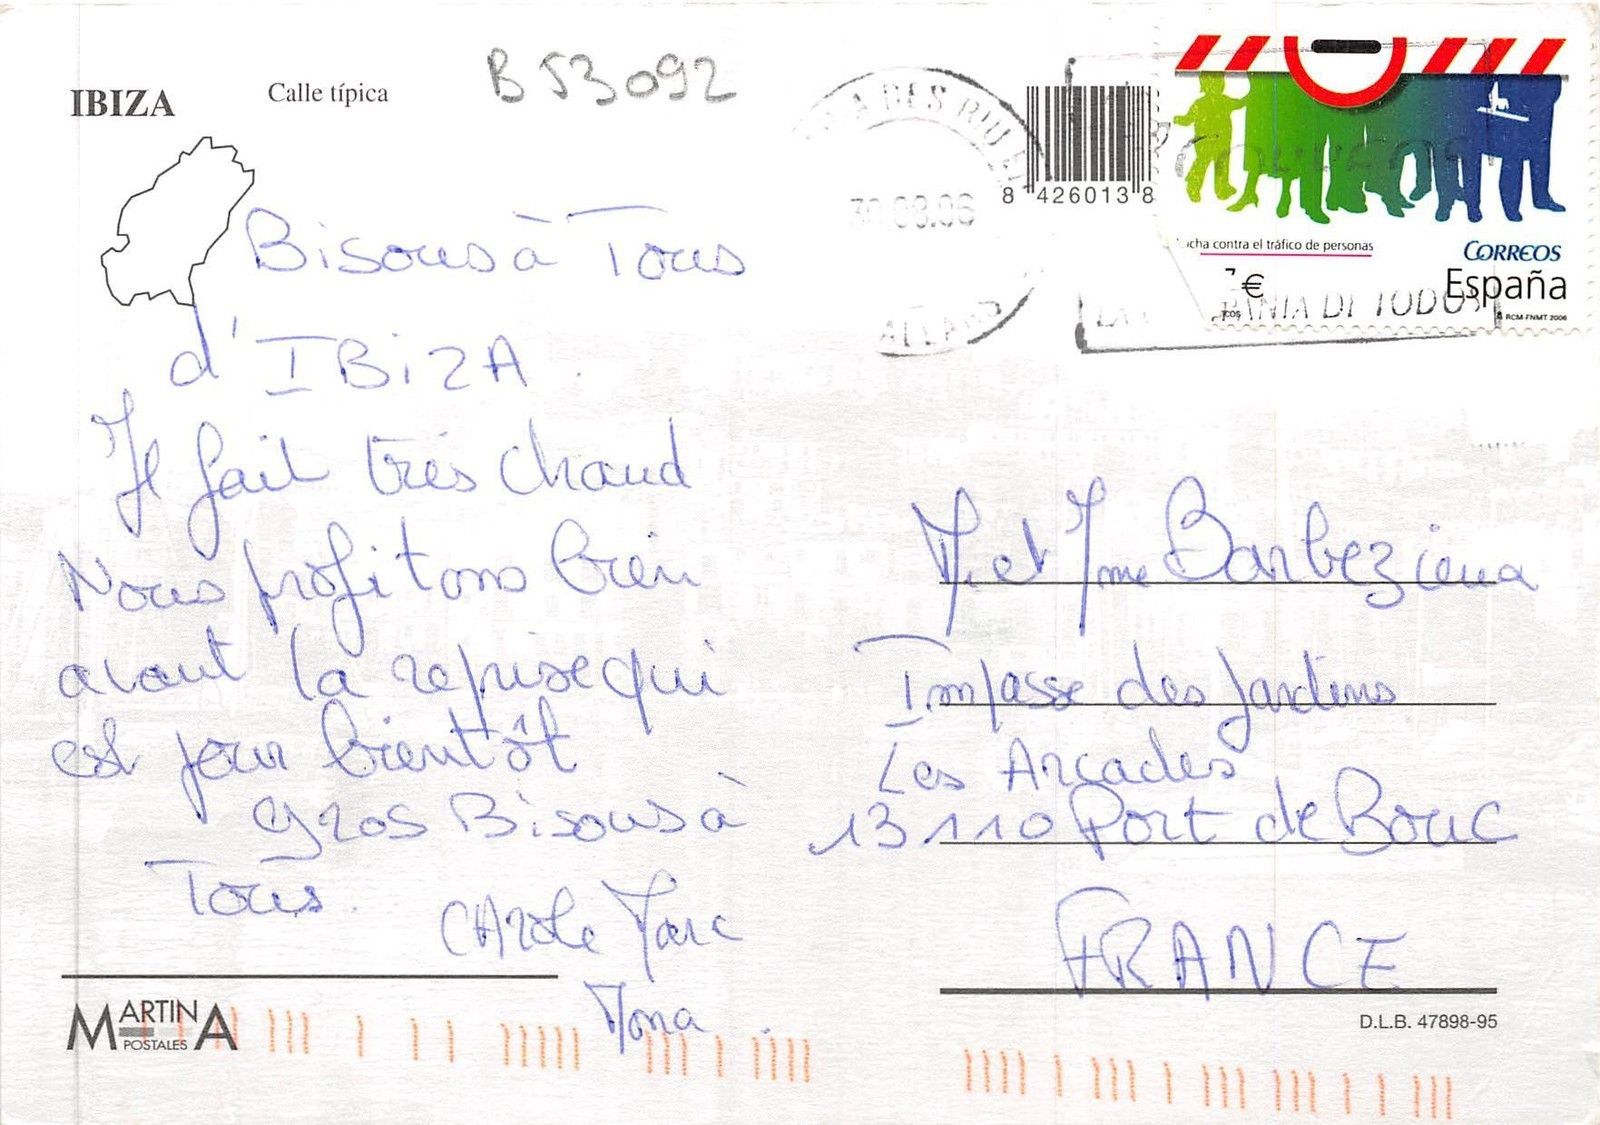 IBIZA
Calle típica
B 53092
8 426013 8
30.08.06
CORREOS
contra el tráfico de personas
CORREOS
€
España
DE TODOS
RCM-FNMT 2006
Bisous à Tous
d'IBIZA.
Il fait très chaud
Nous profitons bien
avant la reprise qui
est pour bientôt
gros Bisous à
Tous.
CArole Marc
Mona.
M. et Mme
Impasse des Jardins
Les Arcades
13110 Port de Bouc
FRANCE
MARTINA
POSTALES
D.L.B. 47898-95